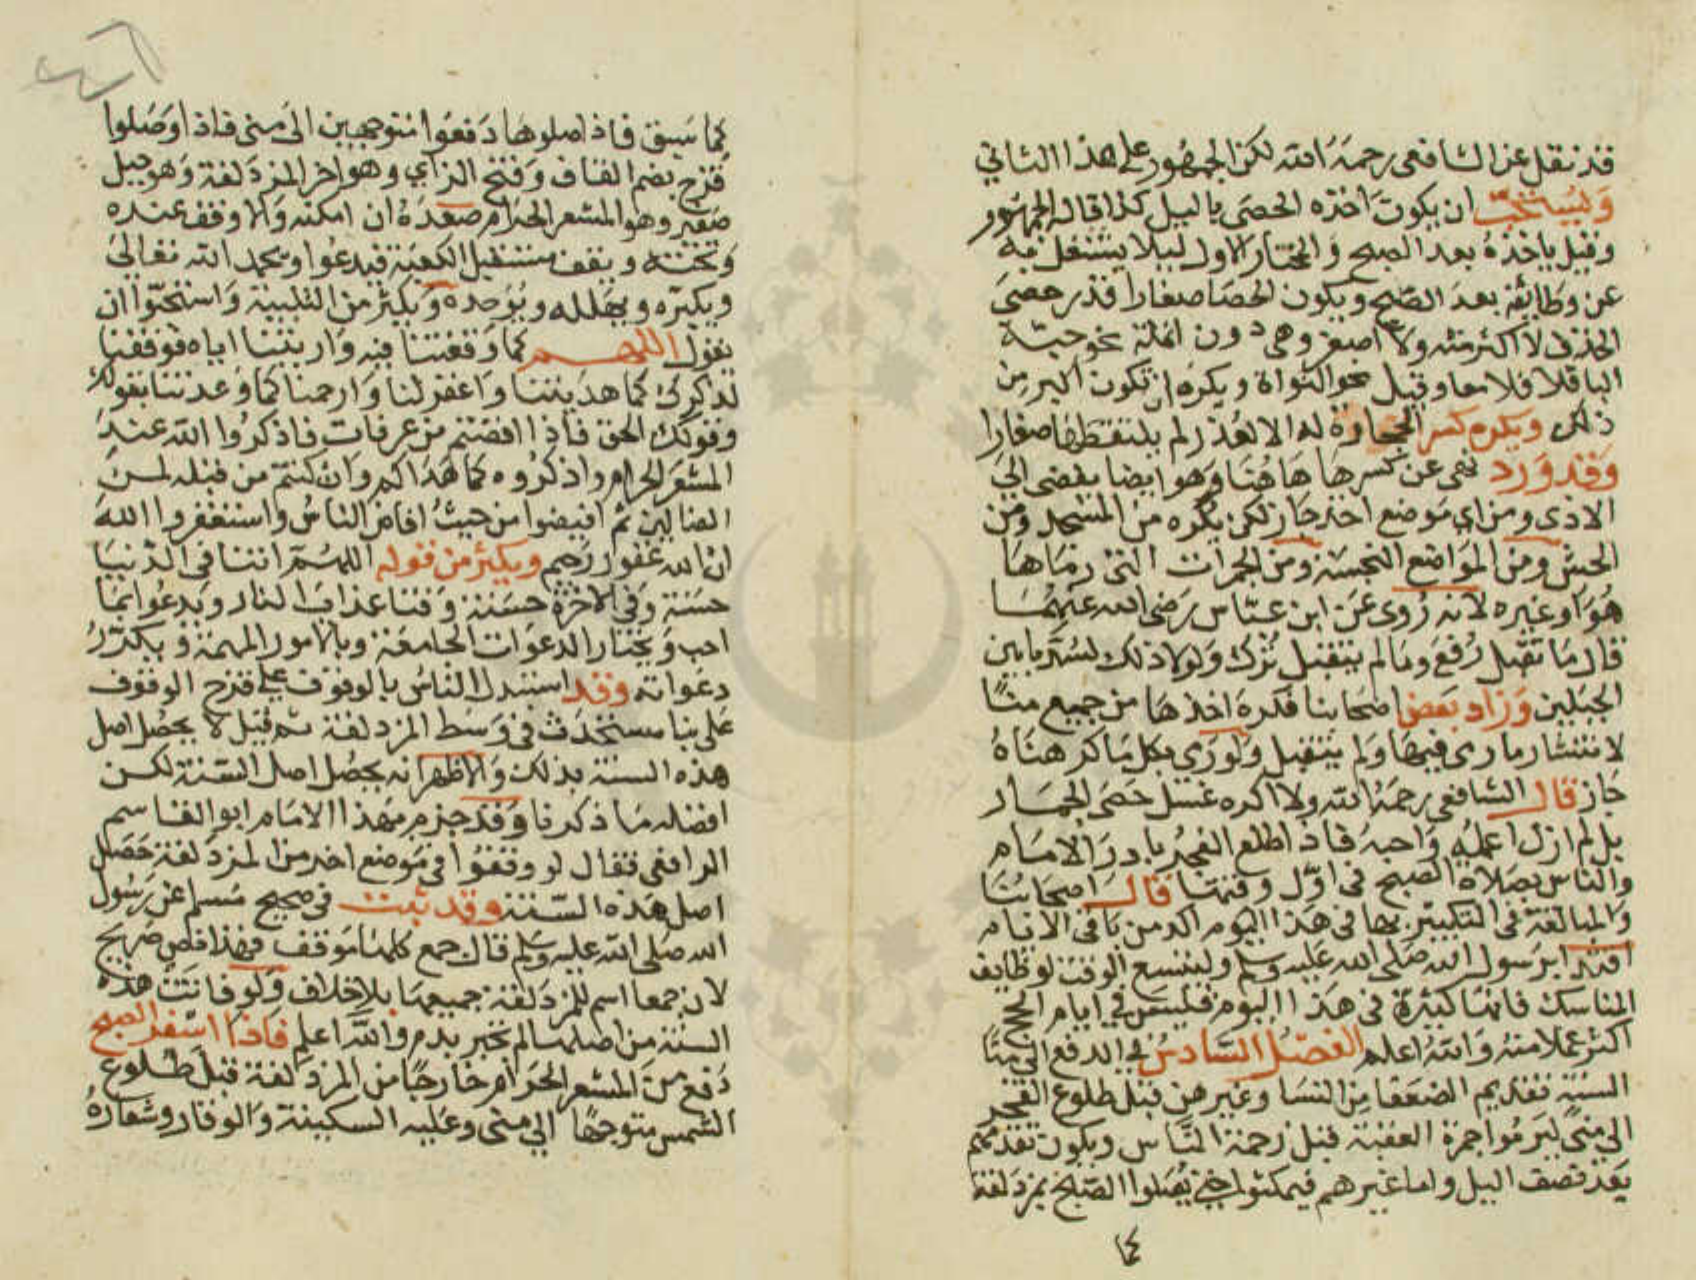 قد نقل عن الشافعى رحمة الله لكن الجمهور على هذا الثاني
وَيُستحَبّ ان يكون اخذه الحصى بالليل كذا قاله الجمهور
وقيل ياخذه بعد الصبح والمختار الاول ليلا يشتغل به
عن وظايفه بعد الصبح ويكون الحصا صغارا قدر حصى
الخذف لا اكثر منه ولا اصغر وهى دون انملة نحو حبّة
الباقلا فلا وقيل نحو النواة ويكره ان تكون اكبر من
ذلك ويكره كسر الحجارة له الا لعذر لم يلتقطها صغارا
وَقد وَرد نهى عن كسرها هاهُنا وَهو ايضا يفضى الى
الاذى ومن اي موضع اخذ جاز لكن يكره من المسجد ومن
الحش ومن المواضع النجسة ومن الجمرات التى رمَاها
هُوَ او غيره لانه رُوى عن ابن عبّاس رَضى الله عنهُما
قال ما تقبّل رُفعَ وما لم يتقبل تُرك وَلولا ذلك لسُدّ ما بين
الجبلين وَزاد بَعض اصحابنا فكره اخذها من جميع منًا
لانتشار ما رمى فيها وَلم يتقبل وَلو رَمى بكل ما كرهناهُ
جاز قال الشافعى رحمَهُ الله ولا اكره غسل حَصَى الجمار
بل لم ازل اعمله وَاحبهُ فاذا طلع الفجرُ بادرَ الامام
والناس بصلاة الصبح فى اوّل وقتها قال اصحابُنا
وَالمبالغة فى التكبير بها فى هذا اليوم اكد من باقى الايام
اقتدا برسول الله صَلى الله عليه وسلم وليتسع الوقت لوظايف
المناسك فانها كثيرة فى هذا اليوم فليس في ايام الحج
اكثر عملا منهُ وَاللهُ اعلم الفصْلُ السَّادسُ في الدفع الى منًا
السُنة تقديم الضعفا من النسا وغيرهن قبل طلوع الفجر
الى منًى ليرمُوا جمرة العقبة قبل زحمة الناس ويكون تقديمهم
بَعد نصف اليل واما غيرهم فيمكثوا حتى يُصَلوا الصُبح بمزدَلفة
١٤
كما سَبق فاذا صلوها دَفعُوا متوجهين الى مِنى فاذا وَصَلوا
قُزح بضم القاف وَفتح الزاي وهو اخر المزدَلفة وَهو جبل
صغير وهو المشعر الحَرَام صعدَهُ ان امكنه وَالا وقف عنده
وَتحته ويقف مستقبل الكعبَة فيَدعُوا ويحمد الله تعَالىَ
ويكبّره ويهلله ويُوَحده وَيكثر من التلبية وَاستحَبّوا ان
يقول اللهــم كما وَقفتنا فيه وَاريتنا اياه فوفقنا
لذكرك كما هدَيتنا وَاغفر لنا وَارحمنا كما وَعدتنا بقولك
وقولك الحق فاذا افضتم من عرفات فاذكرُوا الله عندَ
المشعَر الحرام واذكرُوه كما هَدَاكم وَان كنتم من قبله لمــن
الضالين ثم افيضوا من حيثُ افاض الناسُ واستغفروا اللهَ
انّ الله غفور رحيم ويكثر من قوله اللهُمّ اتنا فى الدّنيا
حسَنة وَفي الاخرَة حسَنة وَقنا عذابَ النار وَيدعُوا بما
احب وَيختار الدعوَات الجامعَة وبالامور المهمة وَيكرّرُ
دعوَاته وقد استبدل الناسُ بالوقوف على قزح الوقوف
عَلى بنا مستحدَث فى وَسَط المزدلفة ثم قيل لا يحصُل اصل
هذه السنة بذلك وَالاظهر انه يحصُل اصل السّنة لكـن
افضله مَا ذكرنا وَقد جزم بهَذا الامام ابو القاسم
الرافعى فقال لو وقفوُا فى مَوضع اخر من المزدَلفة حَصَل
اصل هَذه السّنة وقد ثبت فى صَحيح مُسلم عن رَسُول
الله صَلى اللهُ عليه وَسلم قال جمع كلها مَوقف فهذا نص صَريح
لان جمعا اسم للمزدَلفة جميعهَا بلا خلاف وَلو فاتت هذه
السنة من اصلها لم تجبر بدم والله اعلم فاذا اسْفر الصبح
دَفع من المشعر الحَرام خارجًا من المزدَلفة قبل طلوع
الشمس متوجهًا الي منى وعَليه السكينة وَالوقار وشعارهُ